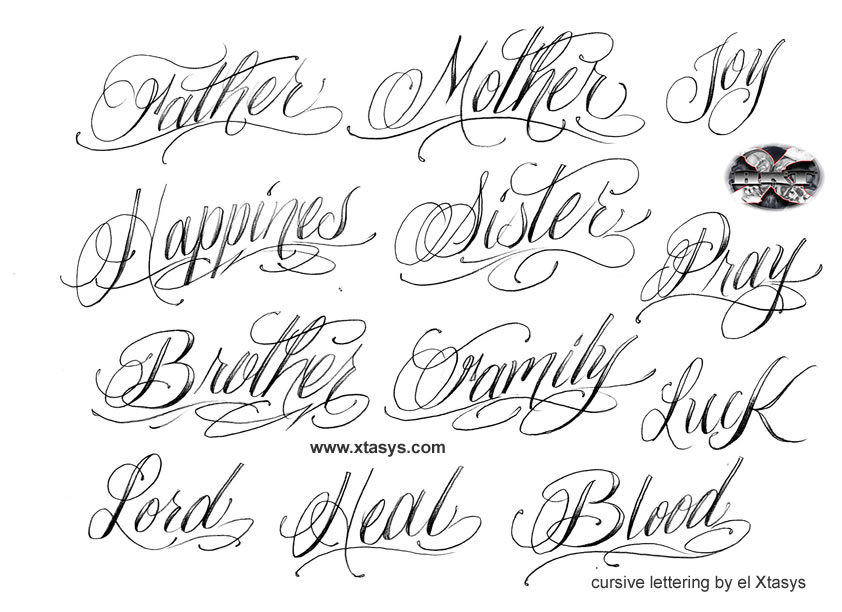 Father Mother Joy
Happines Sister
Pray
Brother Family
Luck
www.xtasys.com
Lord Heal Blood
cursive lettering by el Xtasys